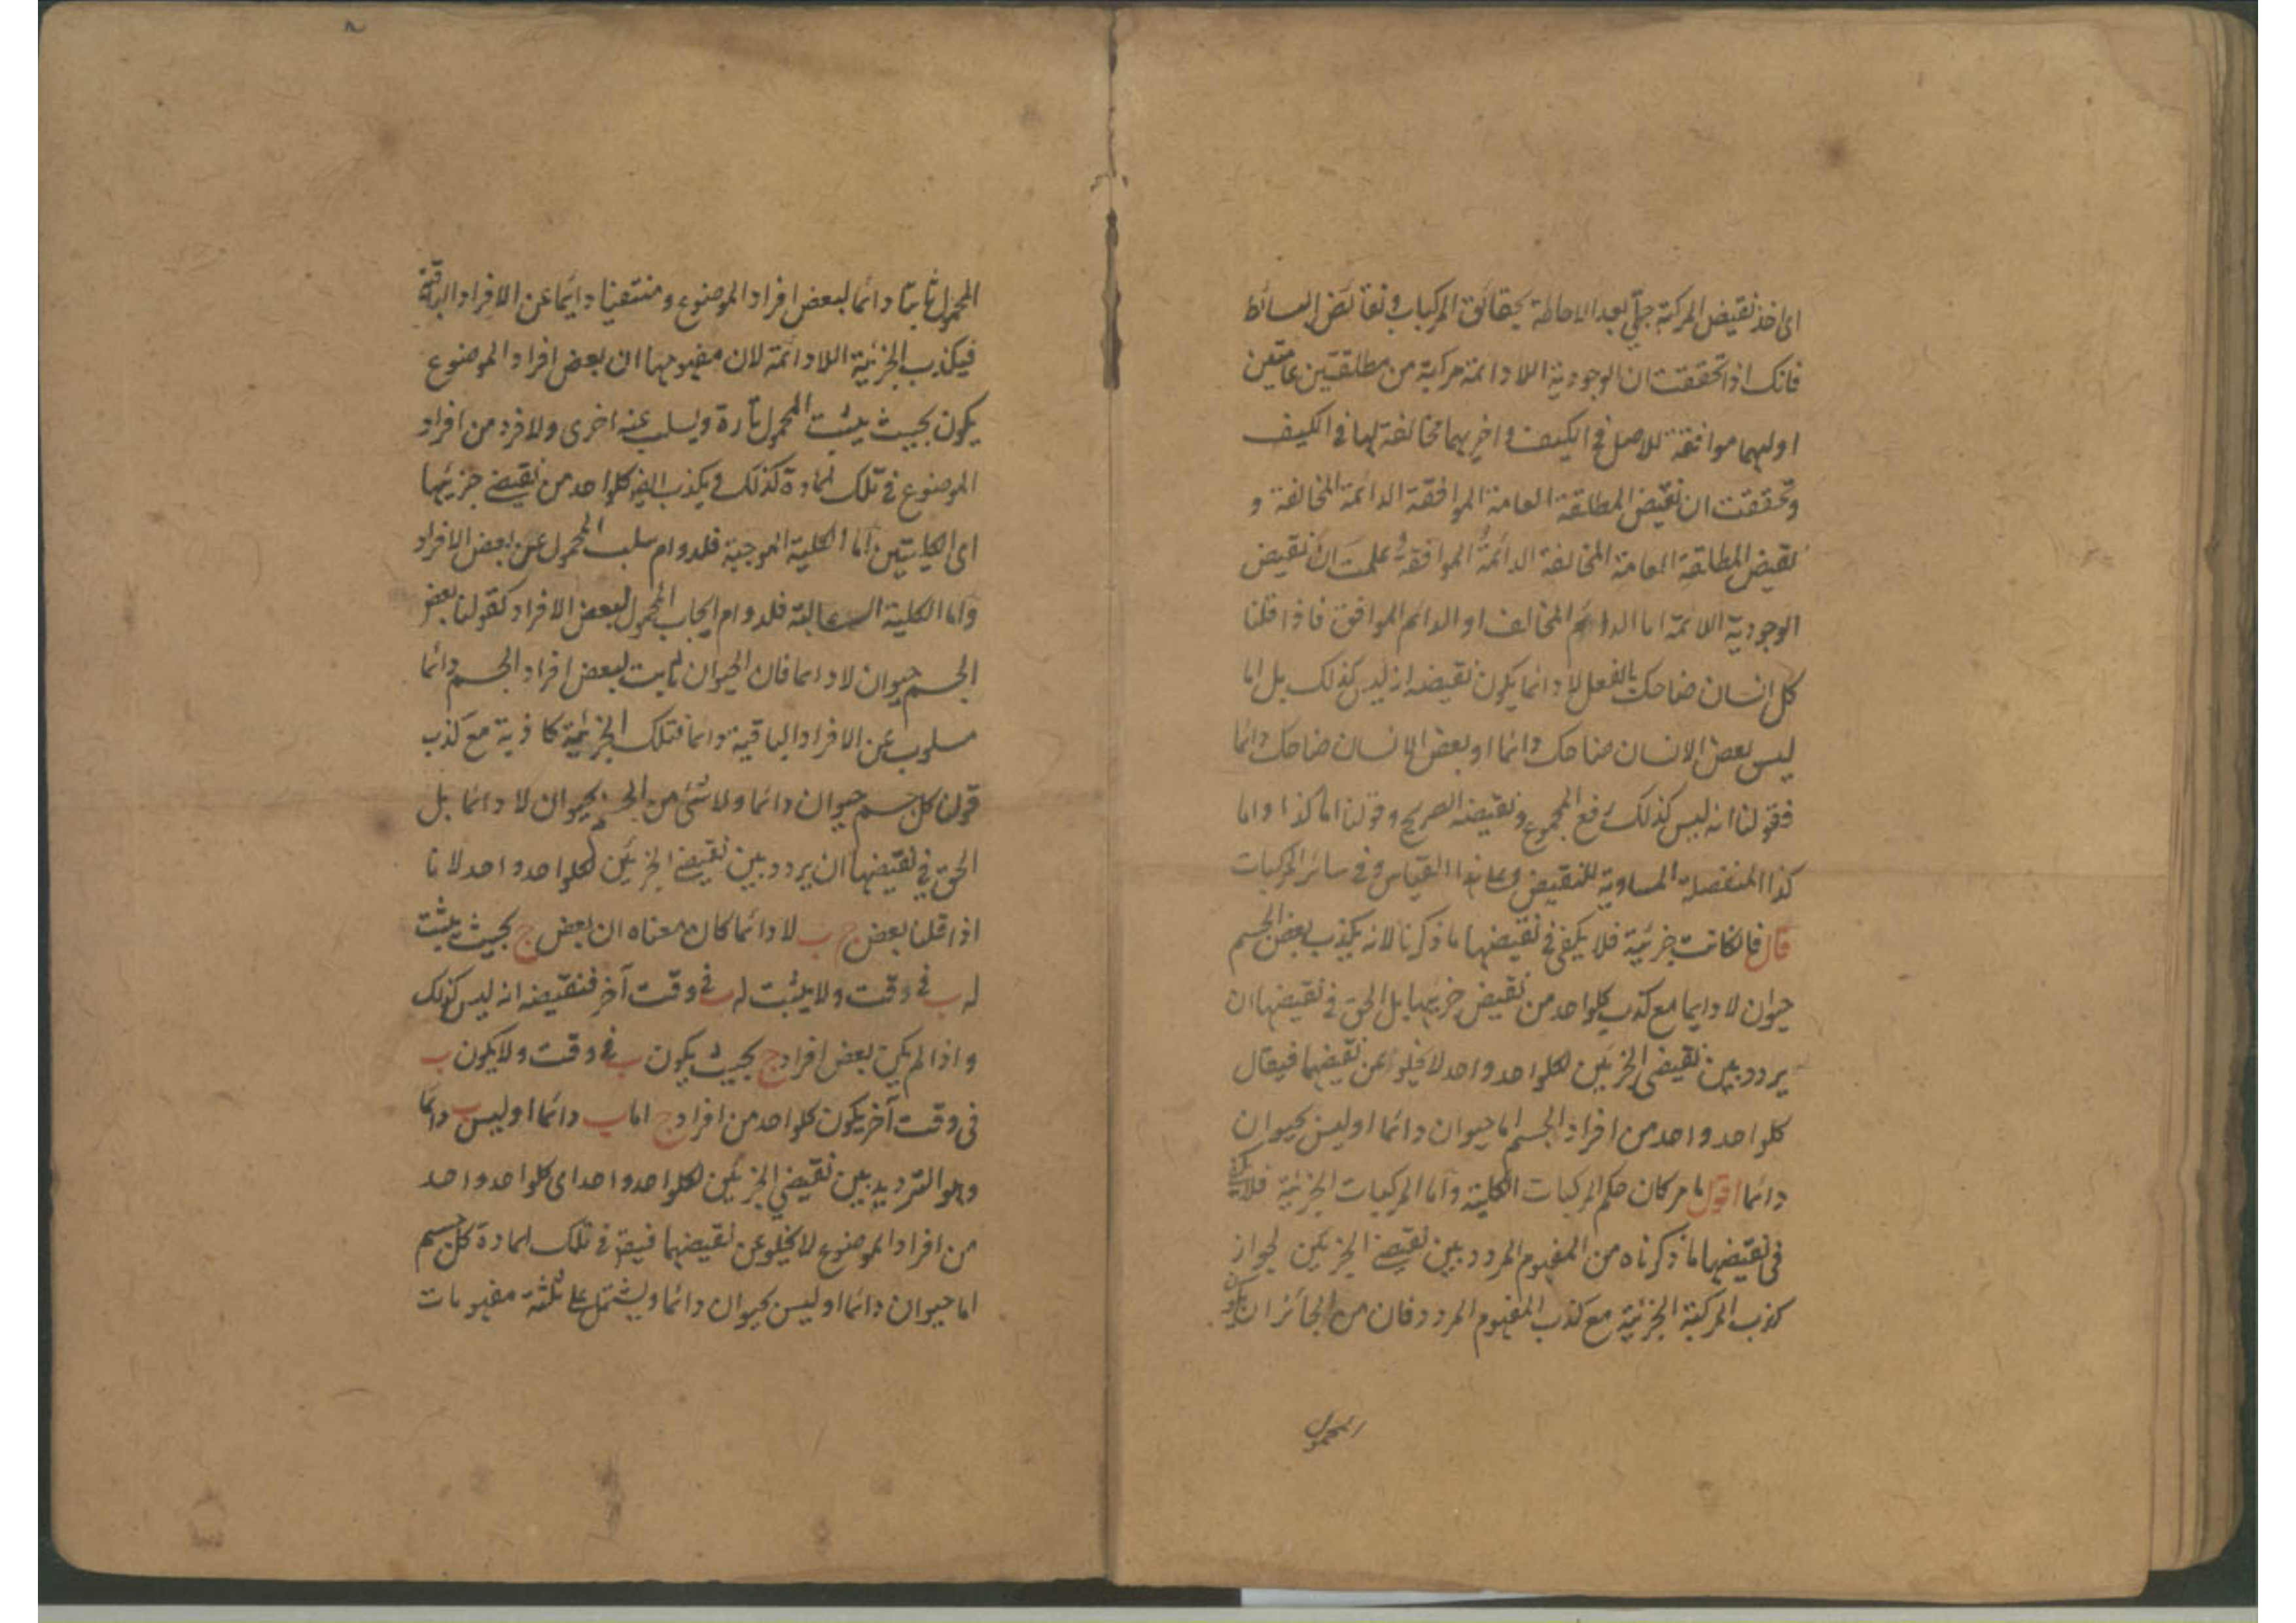 اى اخذ نقيض المركبة جلى بعد الاحاطة بحقائق المركبات و نقائض البسائط
فانك اذا تحققت ان الوجودية اللادائمة مركبة من مطلقتين عامتين
اوليهما موافقة للاصل فى الكيف و اخريهما مخالفة لها فى الكيف
وتحققت ان نقيض المطلقة العامة الموافقة الدائمة المخالفة و
نقيض المطلقة العامة المخالفة الدائمة الموافقة و علمت ان نقيض
الوجودية اللائمة اما الدائم المخالف او الدائم الموافق فاذا قلنا
كل انسان ضاحك بالفعل لا دائما يكون نقيضه انه ليس كذلك بل اما
ليس بعض الانسان ضاحك دائما او بعض الانسان ضاحك دائما
فقولنا انه ليس كذلك رفع المجموع و نقيضه الصريح و قولنا اما كذا واما
كذا المنفصلة المساوية للنقيض وعلى هذا القياس فى سائر المركبات
قال فان كانت جزئية فلا يكفى فى نقيضها ما ذكرنا لانه يكذب بعض الجسم
حيوان لا دايما مع كذب كلواحد من نقيض جزيها بل الحق فى نقيضها ان
يردد بين نقيضى الجزئين لكلواحد واحد لا يخلو عن نقيضهما فيقال
كلواحد واحد من افراد الجسم اما حيوان دائما او ليس بحيوان
دائما اقول ما مر كان حكم المركبات الكلية واما المركبات الجزئية فلا يكفى
فى نقيضها ما ذكرناه من المفهوم المردد بين نقيضى الجزئين لجواز
كذب المركبة الجزئية مع كذب المفهوم المردد فان من الجائز ان يكون
المحمول
المحمول ثابتا دائما لبعض افراد الموضوع و منتفيا دايما عن الافراد الباقية
فيكذب الجزئية اللادائمة لان مفهومها ان بعض افراد الموضوع
يكون بحيث يثبت المحمول تارة ويسلب عنه اخرى ولا فرد من افراد
الموضوع فى تلك المادة كذلك و يكذب ايضا كلواحد من نقيضى جزئيها
اى الكليتين اما الكلية الموجبة فلدوام سلب المحمول عن بعض الافراد
واما الكلية السالبة فلدوام ايجاب المحمول لبعض الافراد كقولنا بعض
الجسم حيوان لا دائما فان الحيوان ثابت لبعض افراد الجسم دائما
مسلوب عن الافراد الباقية دائما فتلك الجزئية كاذبة مع كذب
قولنا كل جسم حيوان دائما ولا شئ من الجسم بحيوان لا دائما بل
الحق فى نقيضها ان يردد بين نقيضى الجزئين لكلواحد واحد لانا
اذا قلنا بعض ج ب لا دائما كان معناه ان بعض ج بحيث يثبت
له ب فى وقت ولا يثبت له ب فى وقت آخر فنقيضه انه ليس كذلك
واذا لم يكن بعض افراد ج بحيث يكون ب فى وقت ولا يكون ب
فى وقت آخر يكون كلواحد من افراد ج اما ب دائما او ليس ب دائما
وهو الترديد بين نقيضى الجزئين لكلواحد واحد اى كلواحد واحد
من افراد الموضوع لا يخلو عن نقيضهما فيق فى تلك المادة كل جسم
اما حيوان دائما او ليس بحيوان دائما ويشتمل على ثلثة مفهومات